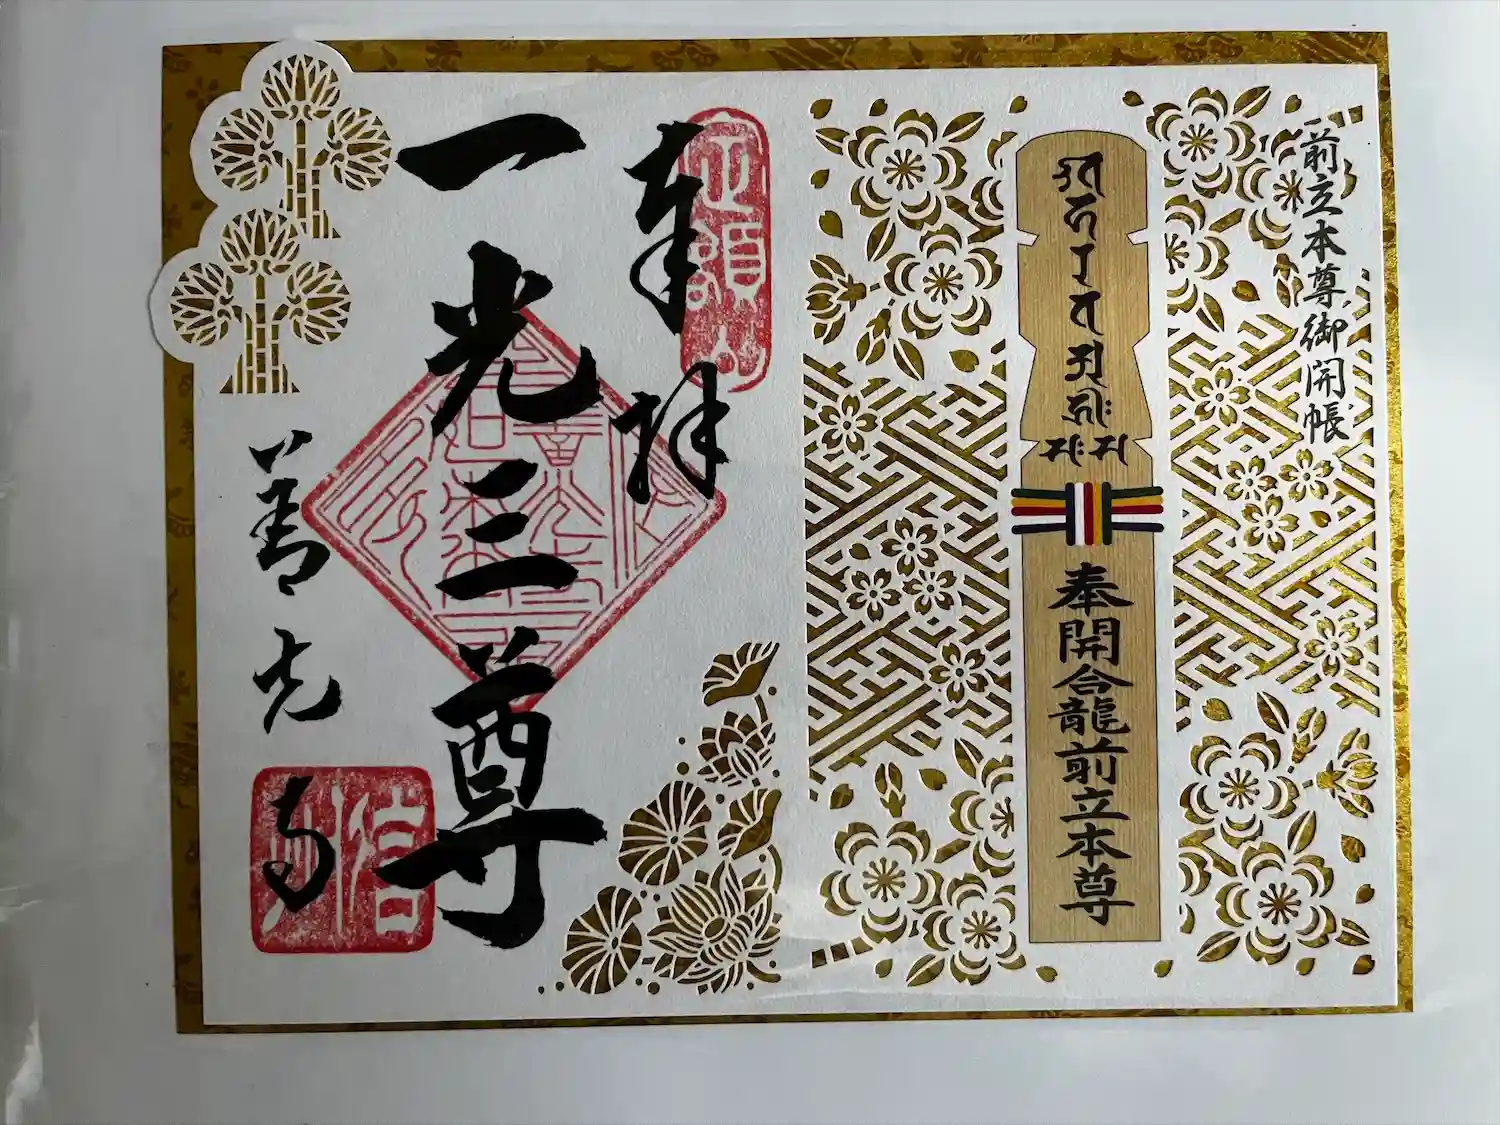 前立本尊御開帳
奉開龕前立本尊
奉拝
定額山
一光三尊
善光寺
信州